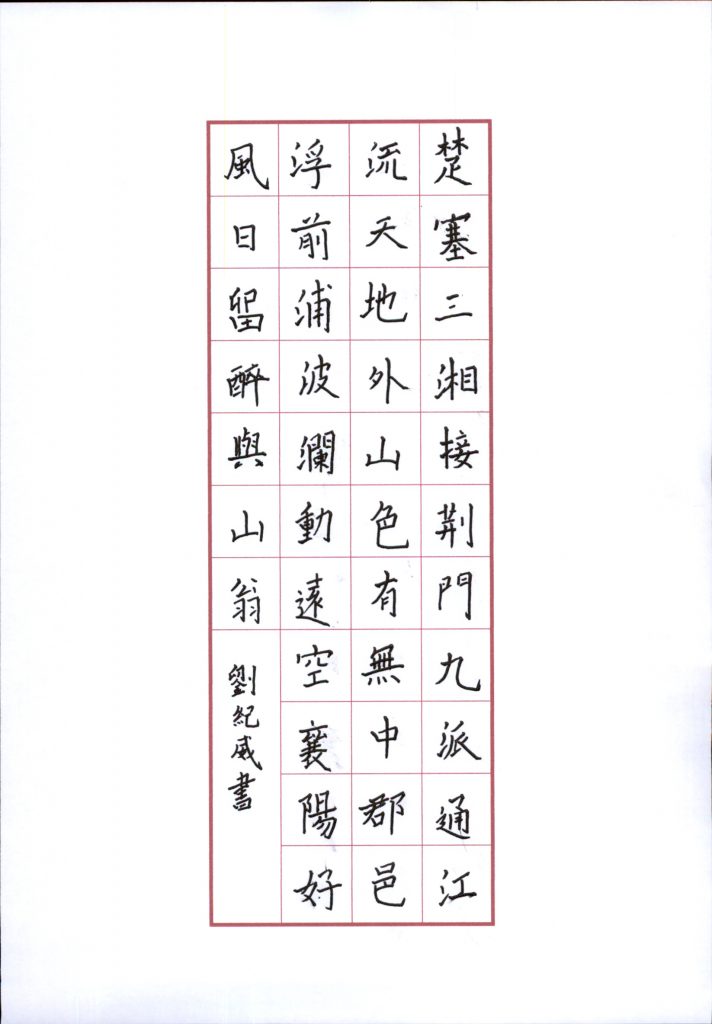 楚塞三湘接荆門九派通江
流天地外山色有無中郡邑
浮前浦波瀾動遠空襄陽好
風日留醉與山翁
劉紀威書